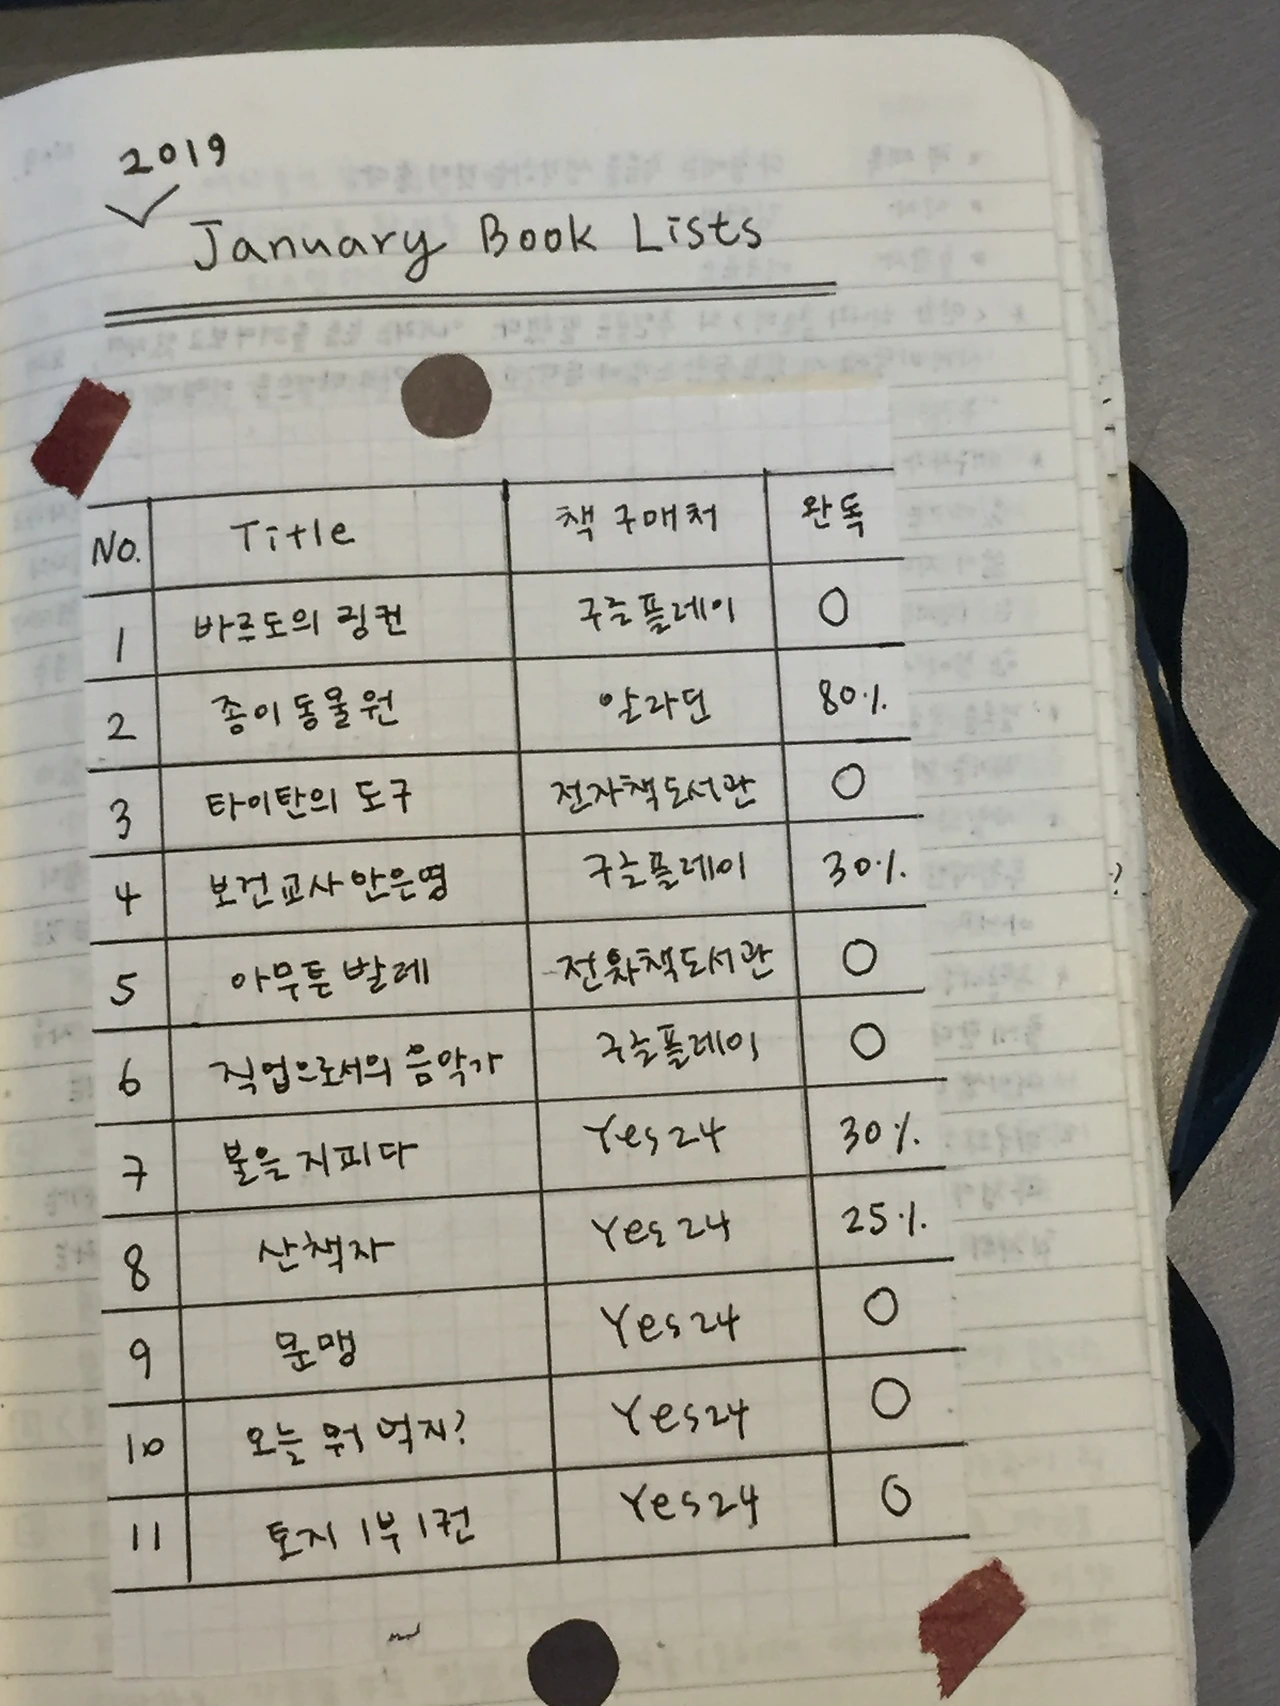 2019
January Book Lists
No. Title 책 구매처 완독
1 바르도의 링컨 구글플레이 O
2 종이동물원 알라딘 80%
3 타이탄의 도구 전자책도서관 O
4 보건교사 안은영 구글플레이 30%
5 아무튼 발레 전자책도서관 O
6 직업으로서의 음악가 구글플레이 O
7 불을 지피다 Yes24 30%
8 산책자 Yes24 25%
9 문맹 Yes24 O
10 오늘 뭐 먹지? Yes24 O
11 토지 1부 1권 Yes24 O